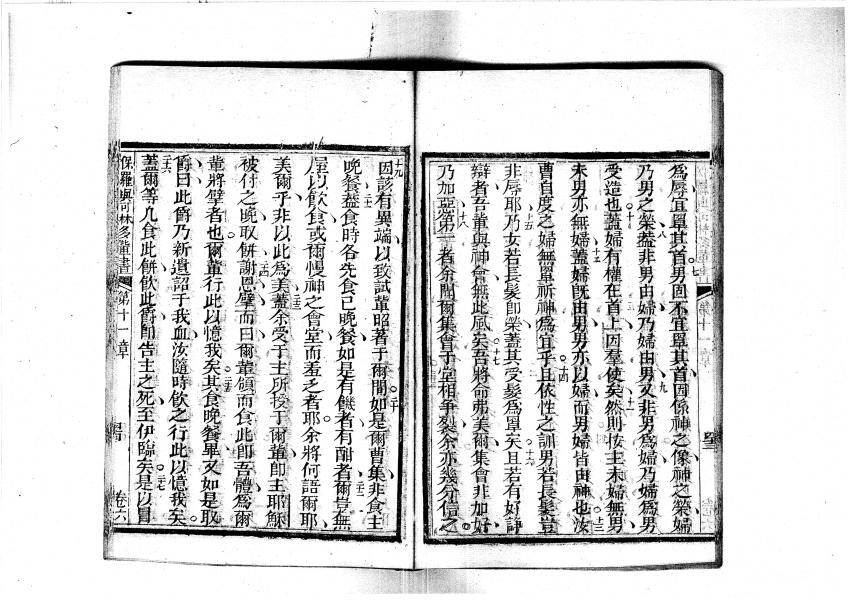 為辱宜單其首男固不宜單其首因係神之像神之榮婦
乃男之榮蓋非男由婦乃婦由男又非男為婦乃婦為男
受造也蓋婦有權在首上因羣使矣然則按主未婦無男
未男亦無婦蓋婦旣由男男亦以婦而男婦皆由神也汝
曹自度之婦無單祈神為宜乎且依性之訓男若長髮豈
非辱耶乃女若長髮卽榮蓋其受髮為單矣且若有好諍
辯者吾輩與神會無此風矣吾將命弗美爾集會非加好
乃加惡第一者余聞爾集會于堂相爭裂余亦幾分信之
因該有異端以致試輩昭著于爾間如是爾曹集非食主
晚餐蓋食時各先食己晚餐如是有饑者有酣者爾豈無
屋以飲食或爾慢神之會堂而羞乏者耶余將何語爾耶
美爾乎非以此為美蓋余受于主所授于爾輩卽主耶穌
被付之晚取餅謝恩擘而曰爾輩領而食此卽吾體為爾
輩將擘者也爾輩行此以憶我矣其食晚餐畢又如是取
爵曰此爵乃新遺詔于我血汝隨時飲之行此以憶我矣
蓋爾等凢食此餅飲此爵卽告主之死至伊臨矣是以冒
保羅與可林多輩書 第十一章 卷六